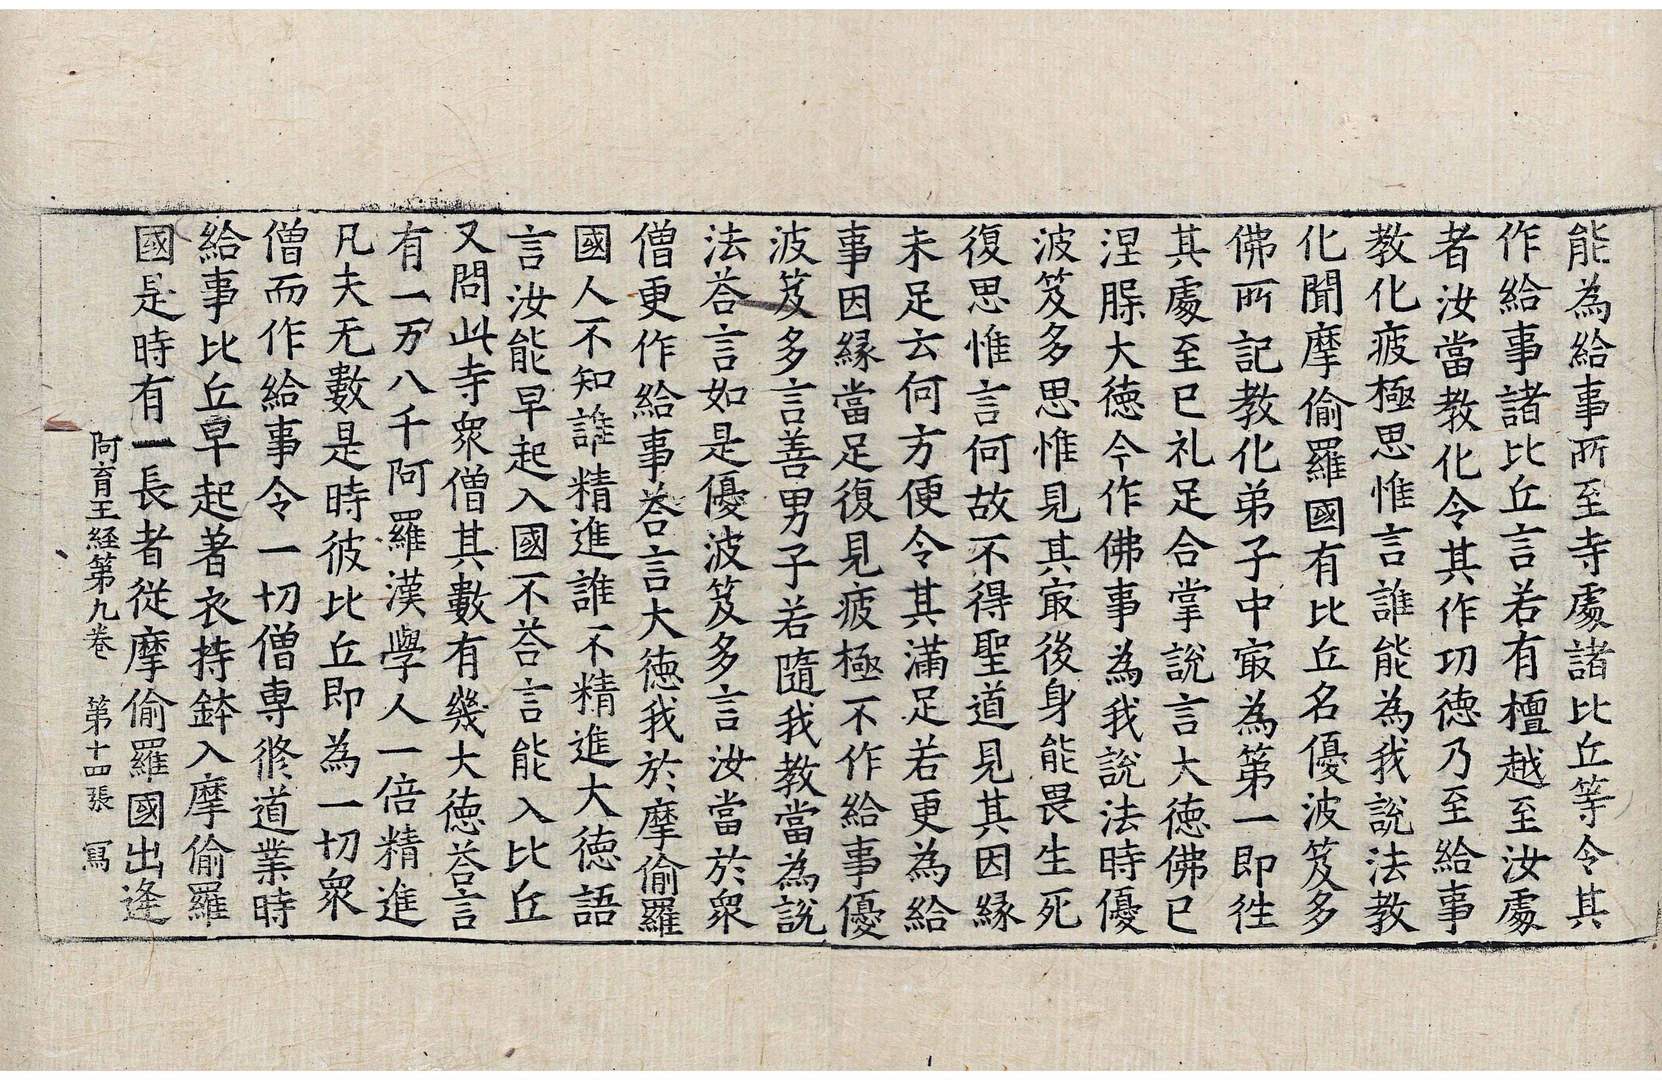 能為給事所至寺處諸比丘等令其
作給事諸比丘言若有檀越至汝處
者汝當教化令其作功德乃至給事
教化疲極思惟言誰能為我說法教
化聞摩偷羅國有比丘名優波笈多
佛所記教化弟子中㝡為第一即徃
其處至已礼足合掌說言大德佛已
涅䏶大德今作佛事為我說法時優
波笈多思惟見其㝡後身能畏生死
復思惟言何故不得聖道見其因緣
未足云何方便令其滿足若更為給
事因緣當足復見疲極不作給事優
波笈多言善男子若隨我教當為說
法荅言如是優波笈多言汝當於衆
僧更作給事荅言大德我於摩偷羅
國人不知誰精進誰不精進大德語
言汝能早起入國不荅言能入比丘
又問此寺衆僧其數有幾大德荅言
有一万八千阿羅漢學人一倍精進
凡夫无數是時彼比丘即為一切衆
僧而作給事令一切僧專脩道業時
給事比丘早起著衣持鉢入摩偷羅
國是時有一長者從摩偷羅國出逢
阿育王経第九卷 第十四張 寫